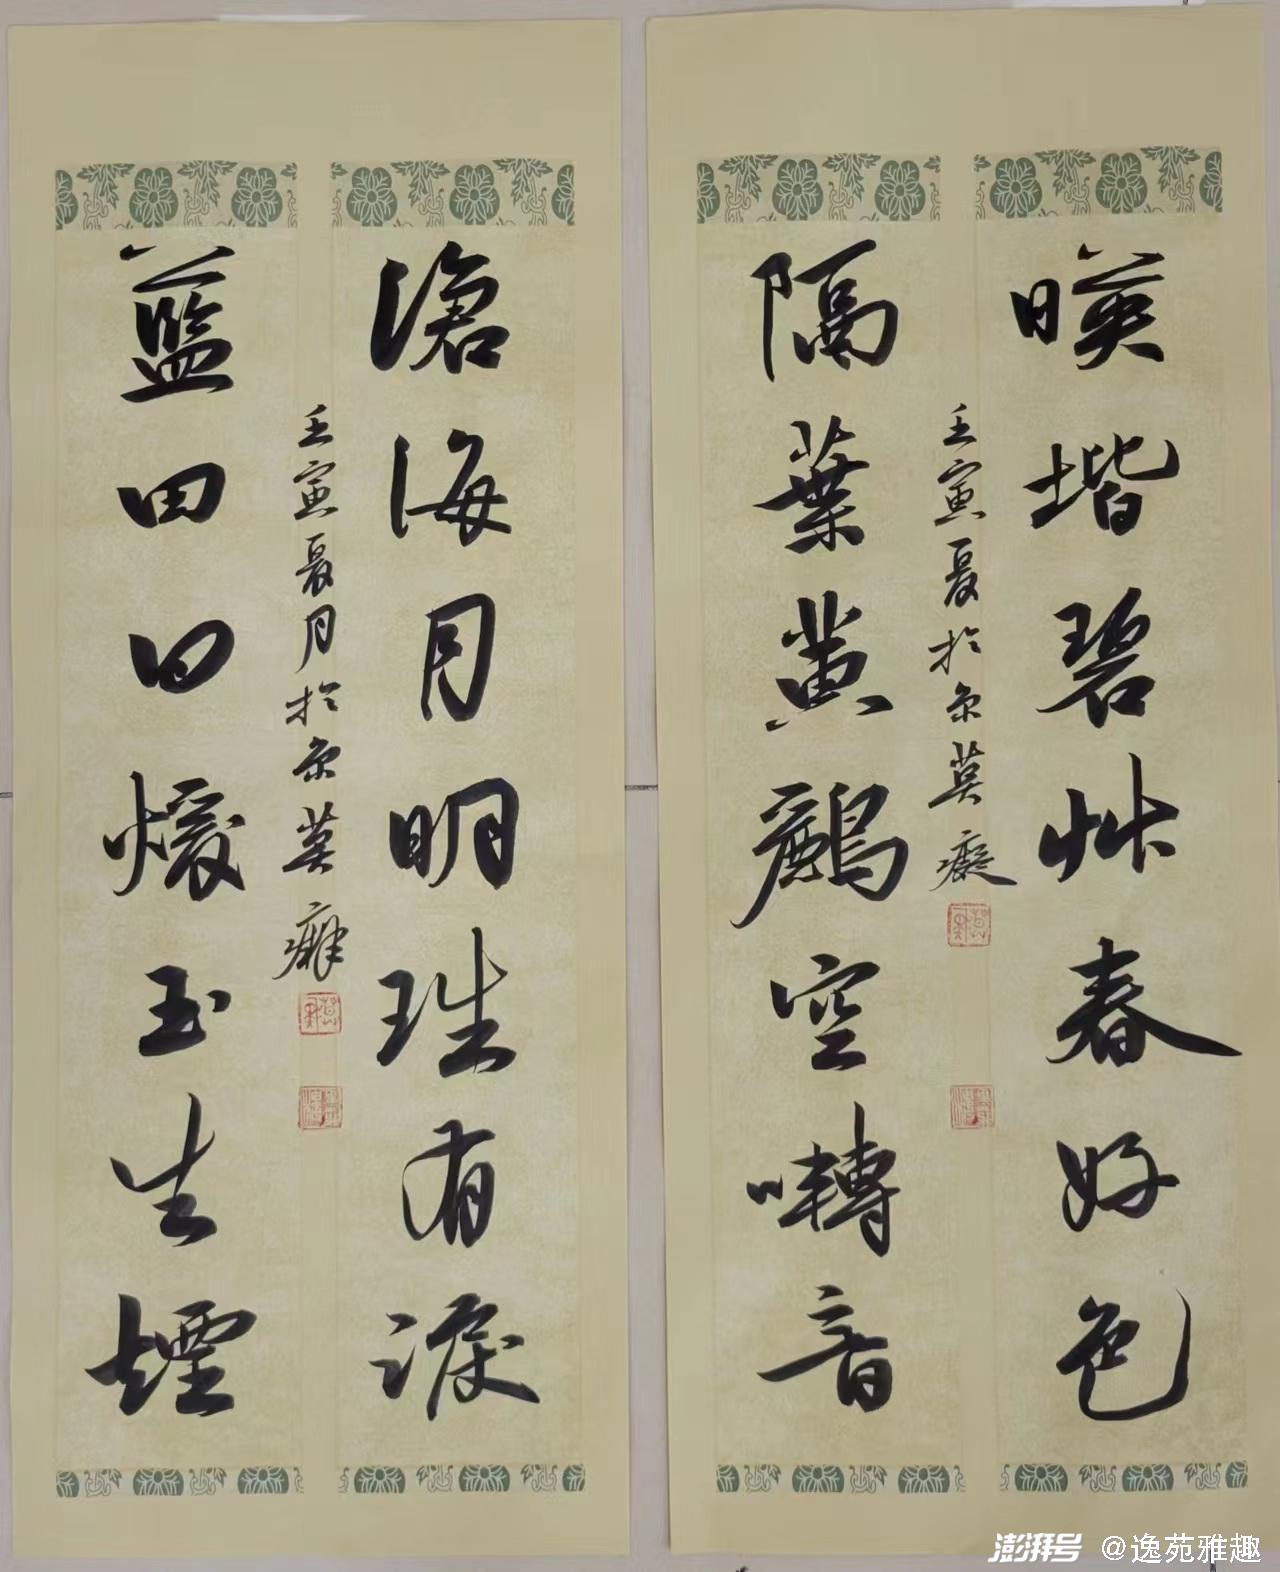 暎堦碧艸春好色
壬寅夏於京莫癡
隔葉黄鸝空囀音
滄海月明珠有淚
壬寅夏月於京莫
藍田日煖玉生煙
澎湃号 @逸苑雅趣